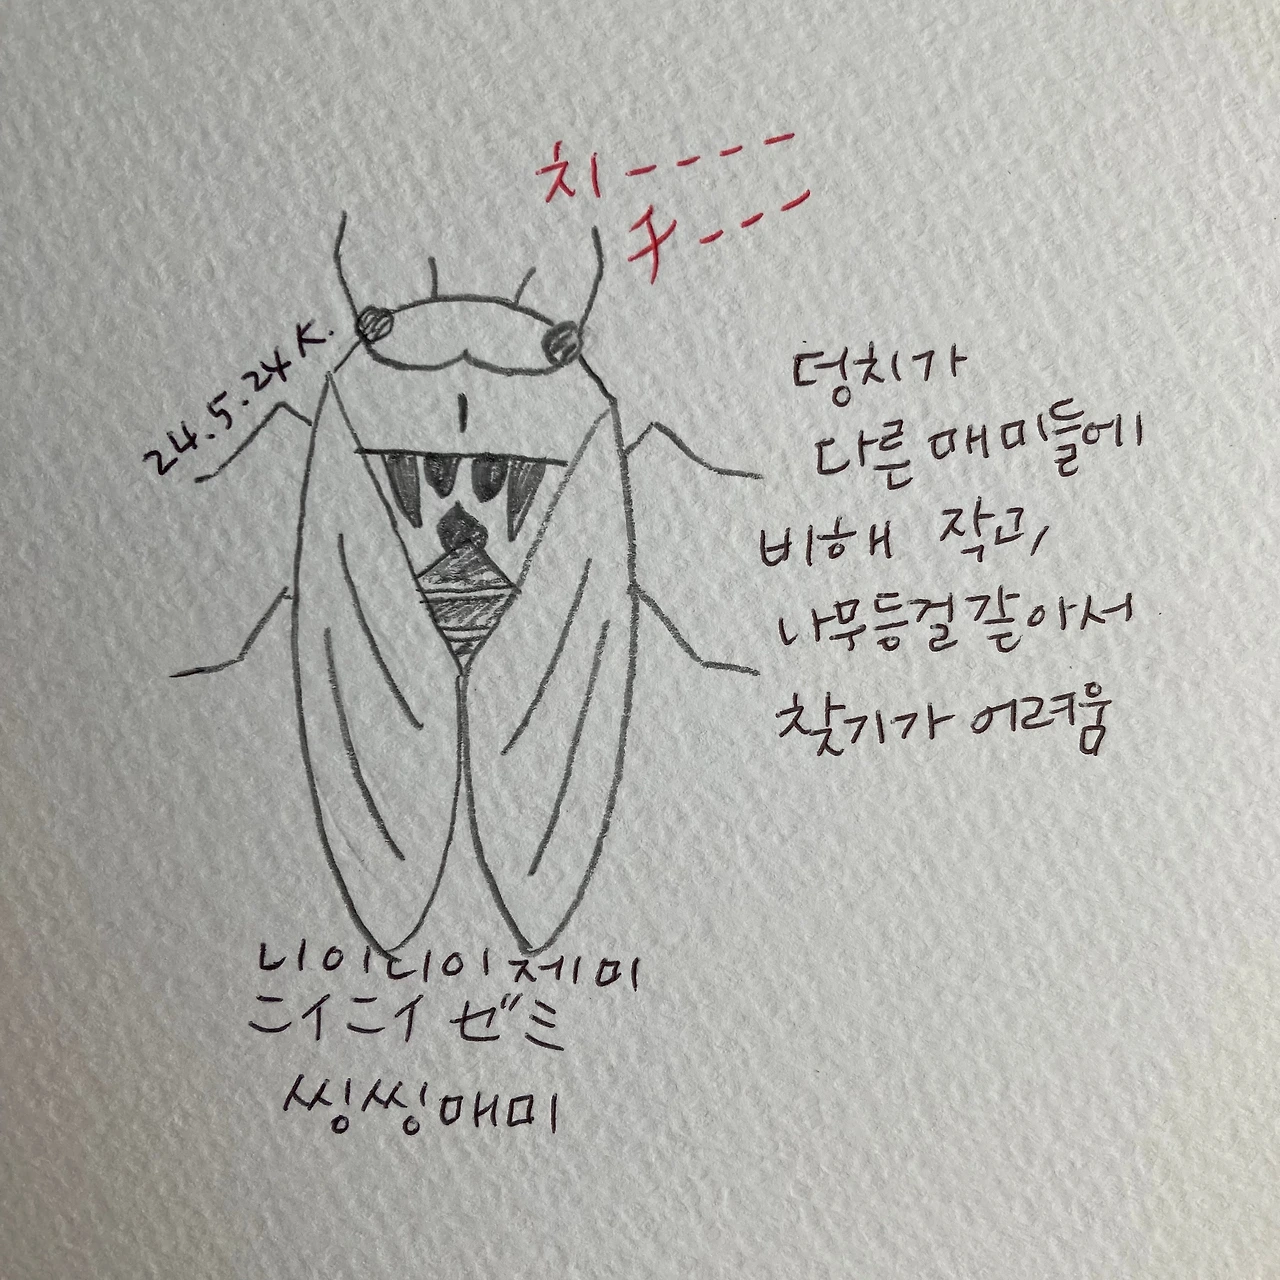 치----
チ---
24.5.24 K.
덩치가
다른 매미들에
비해 작고,
나무등걸 같아서
찾기가 어려움
니이니이제미
ニイニイ ゼミ
씽씽매미